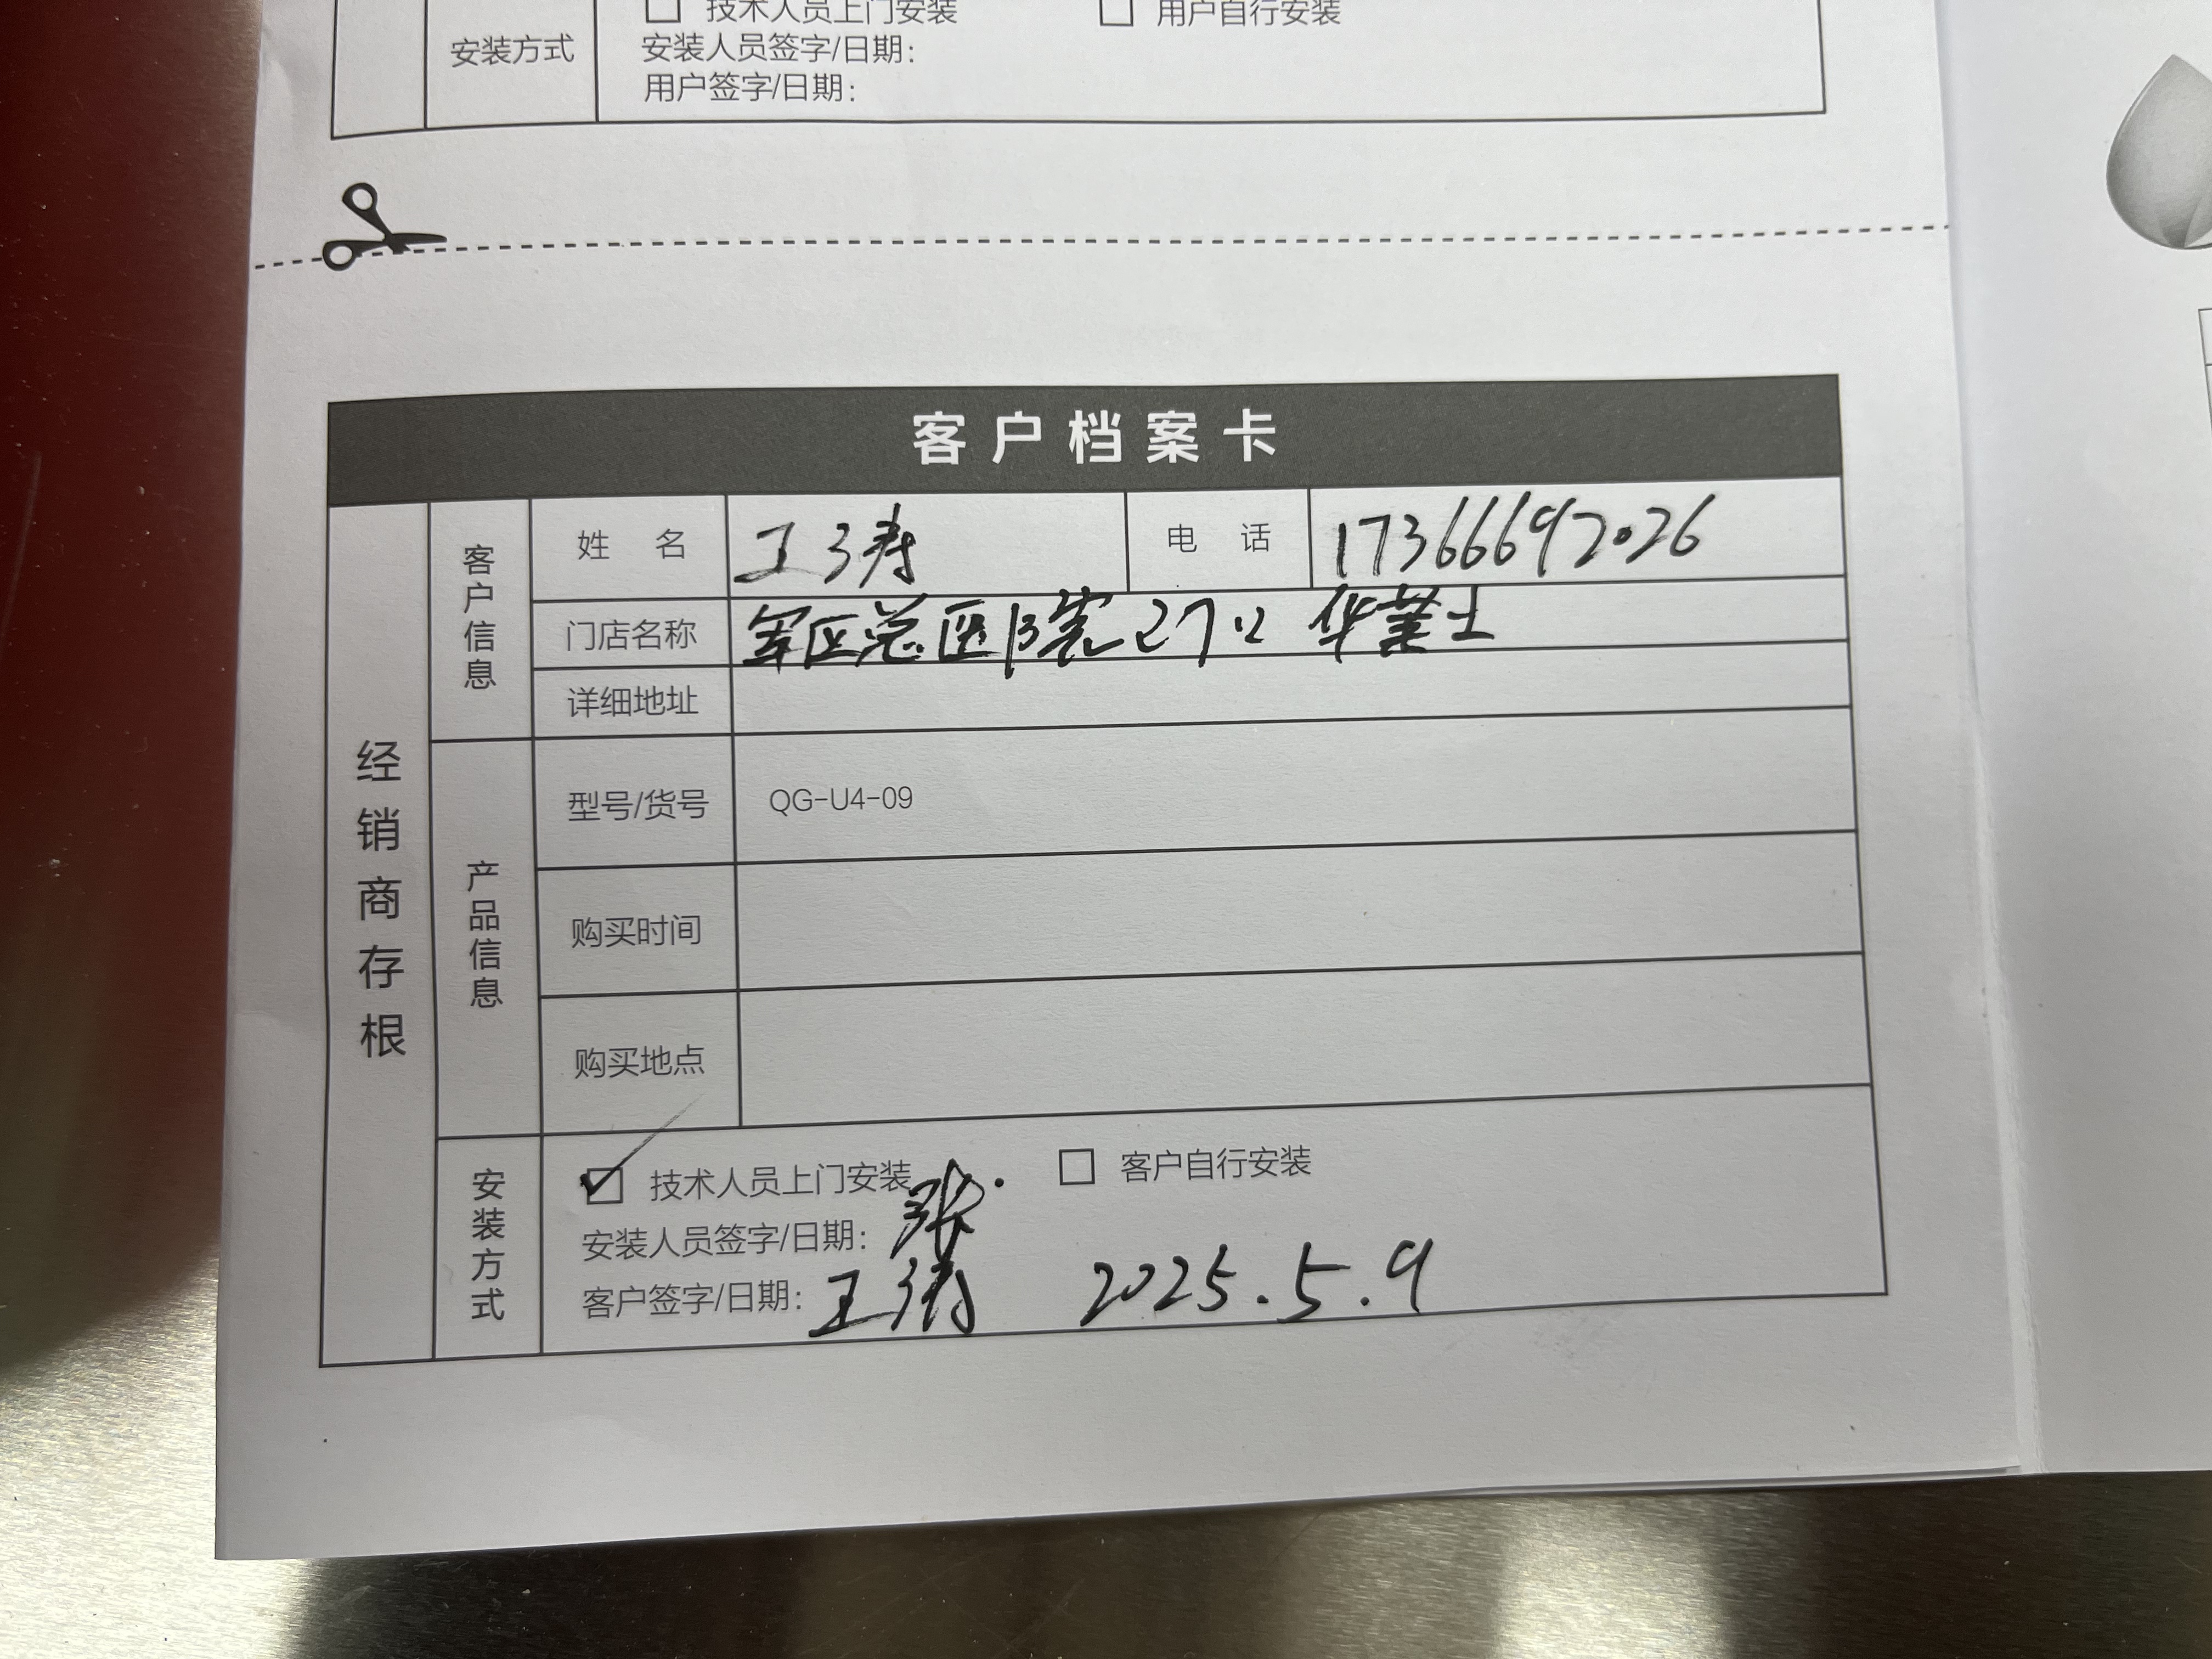 □ 技术人员上门安装 □ 用户自行安装
安装方式
安装人员签字/日期:
用户签字/日期:
客户档案卡
经销商存根
客户信息
姓 名 王
电 话 17366692026
门店名称 军区总医院 华莱士
详细地址
产品信息
型号/货号 QG-U4-09
购买时间
购买地点
安装方式
☑ 技术人员上门安装 □ 客户自行安装
安装人员签字/日期: 张
客户签字/日期: 王 2025.5.9